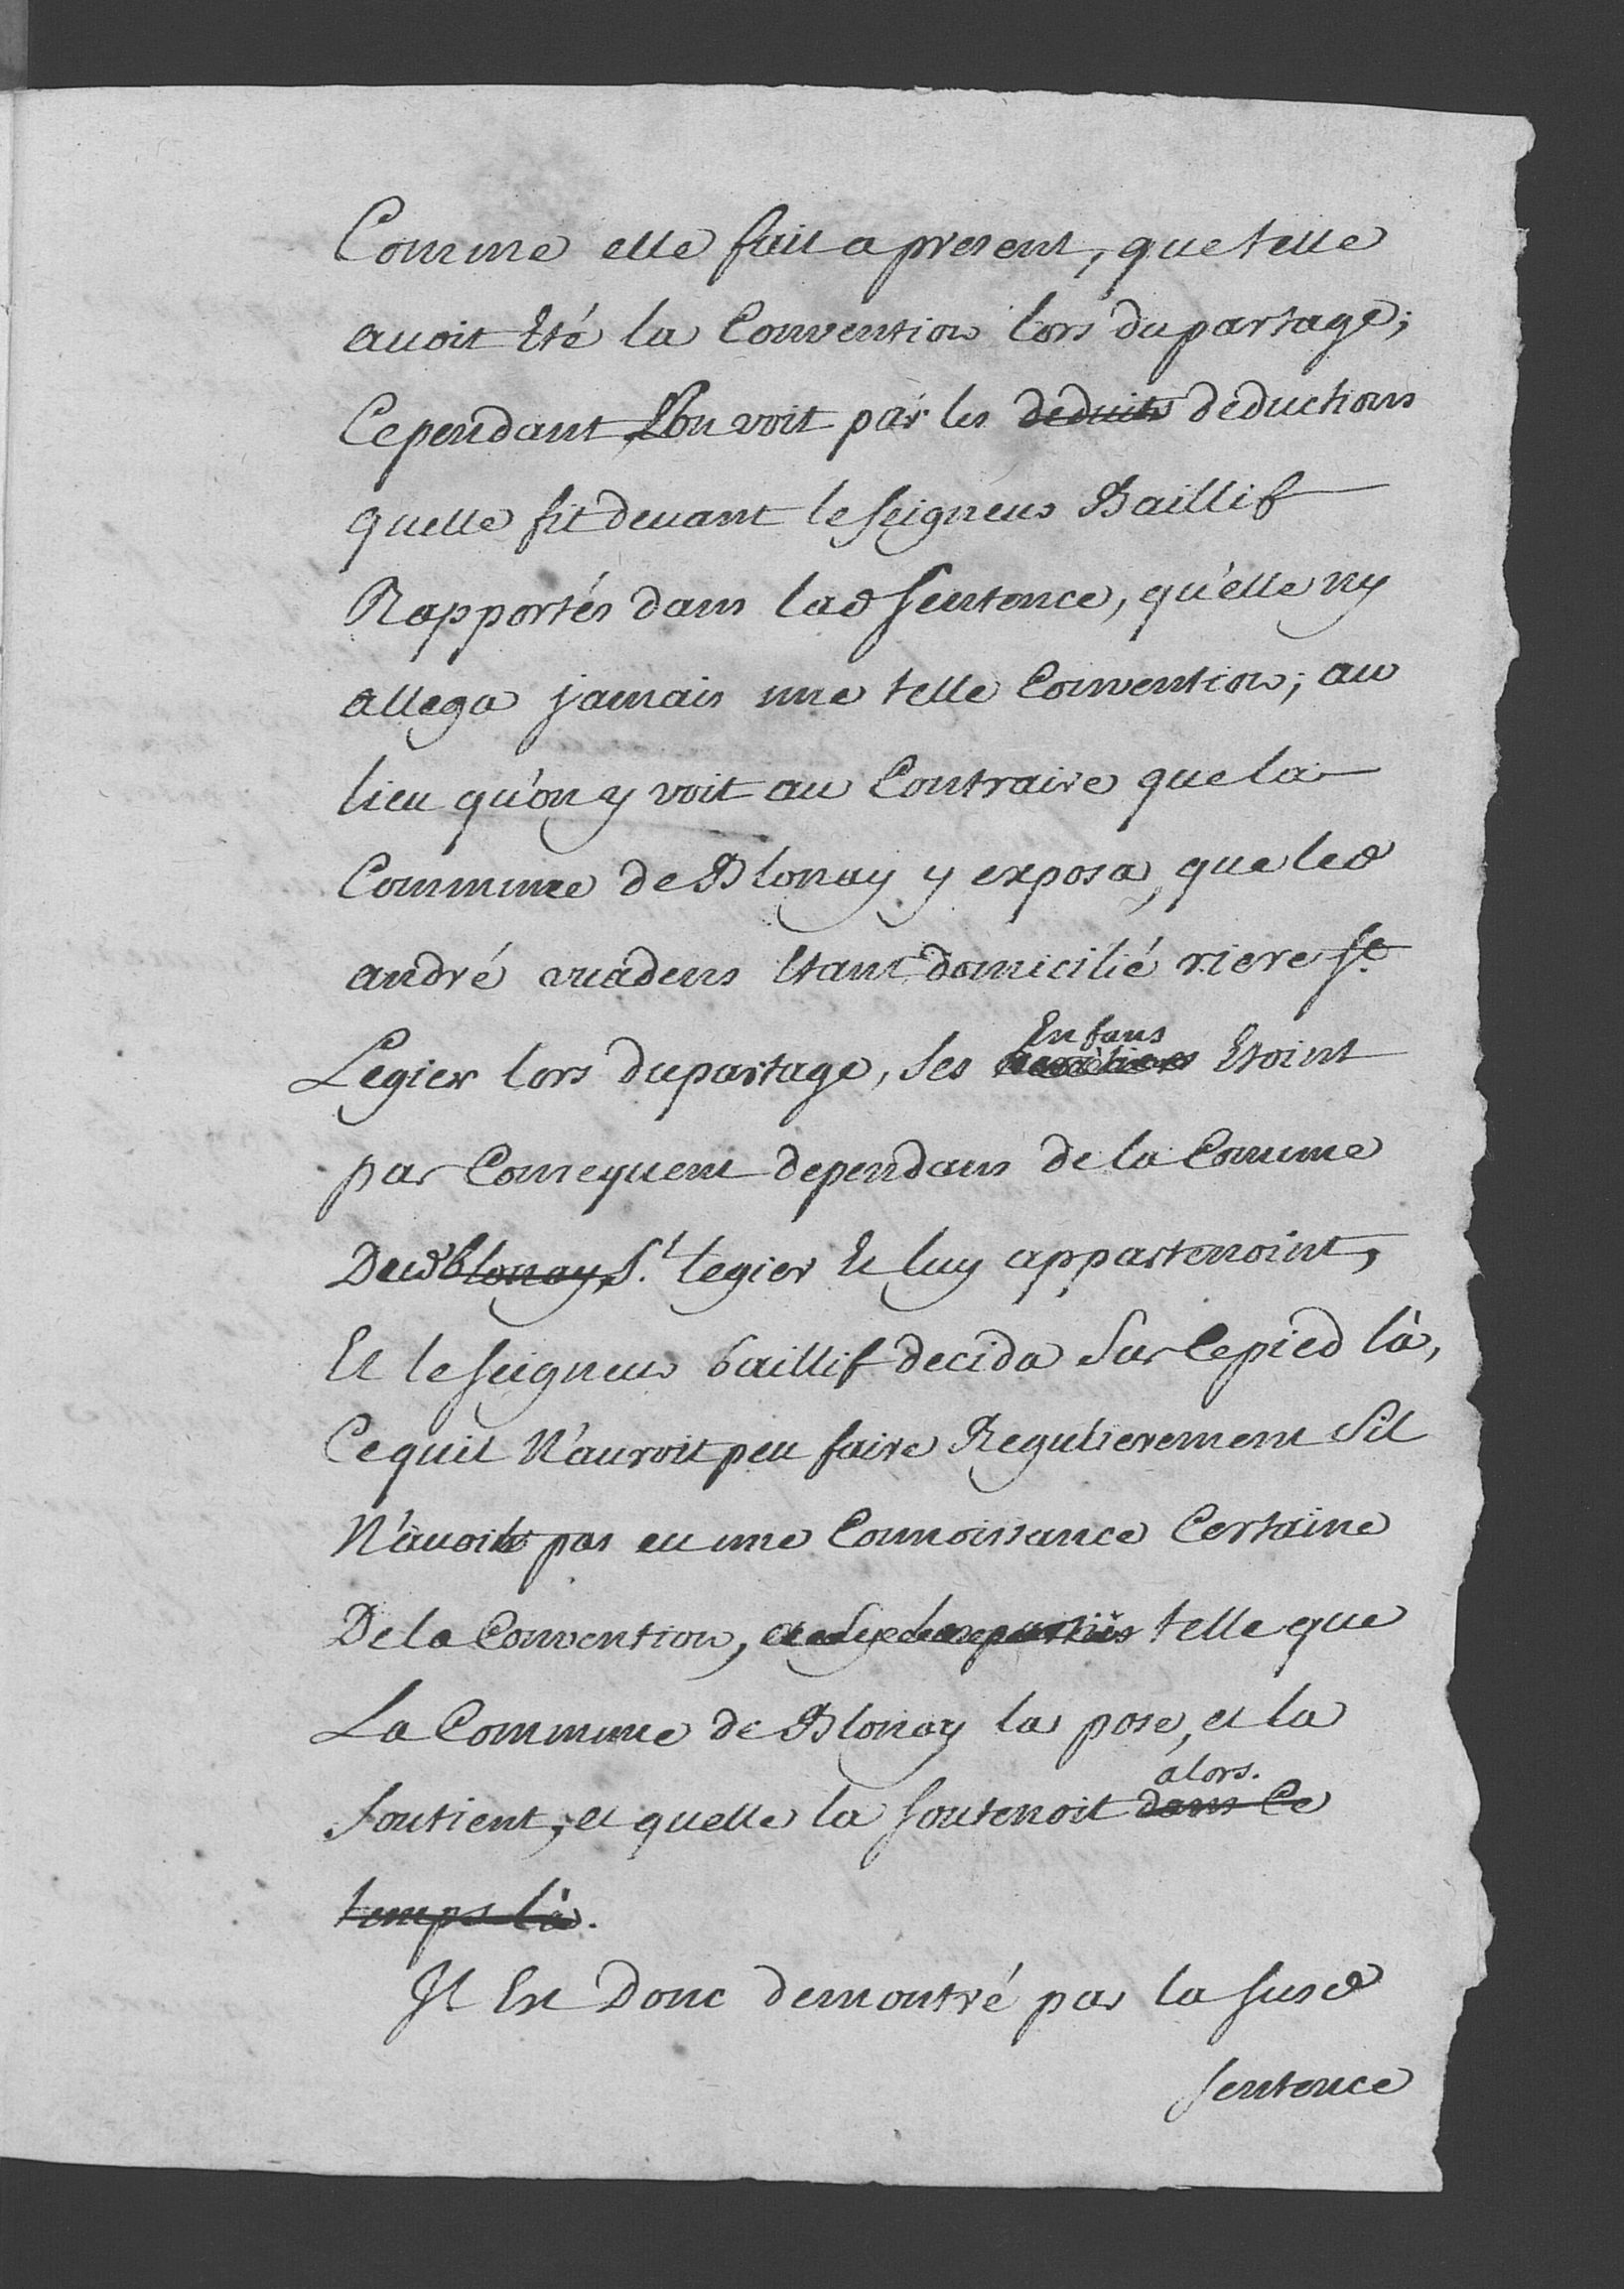 Comme elle fait a present, que telle
avoit Eté la Convention lors du partage;
Cependant Lon voit par les deduits deductions
quelle fit devant le seigneur Baillif
Rapportés dans lad sentence, qu'elle ny
allega jamais une telle Convention; au
lieu qu'on y voit au Contraire que la
Commune de Blonay y exposa, que led
andré vuadens Etant domicilié riere St
Enfans
Legier lors du partage, ses Etoint
par Consequent dependans de la Comune
Dud blonay, St. Legier Et luy appartenoint,
Et le seigneur baillif decida Sur Ce pied là,
Ce quil N'auroit peu faire Regulierement Sil
N'avoit pas eu une Connoissance Certaine
De la Convention, telle que
La Commune de Blonay la pose, et la
alors.
soutient, et quelle la soutenoit dans Ce
temps là.
Il Est Donc demontré par la susd
sentence